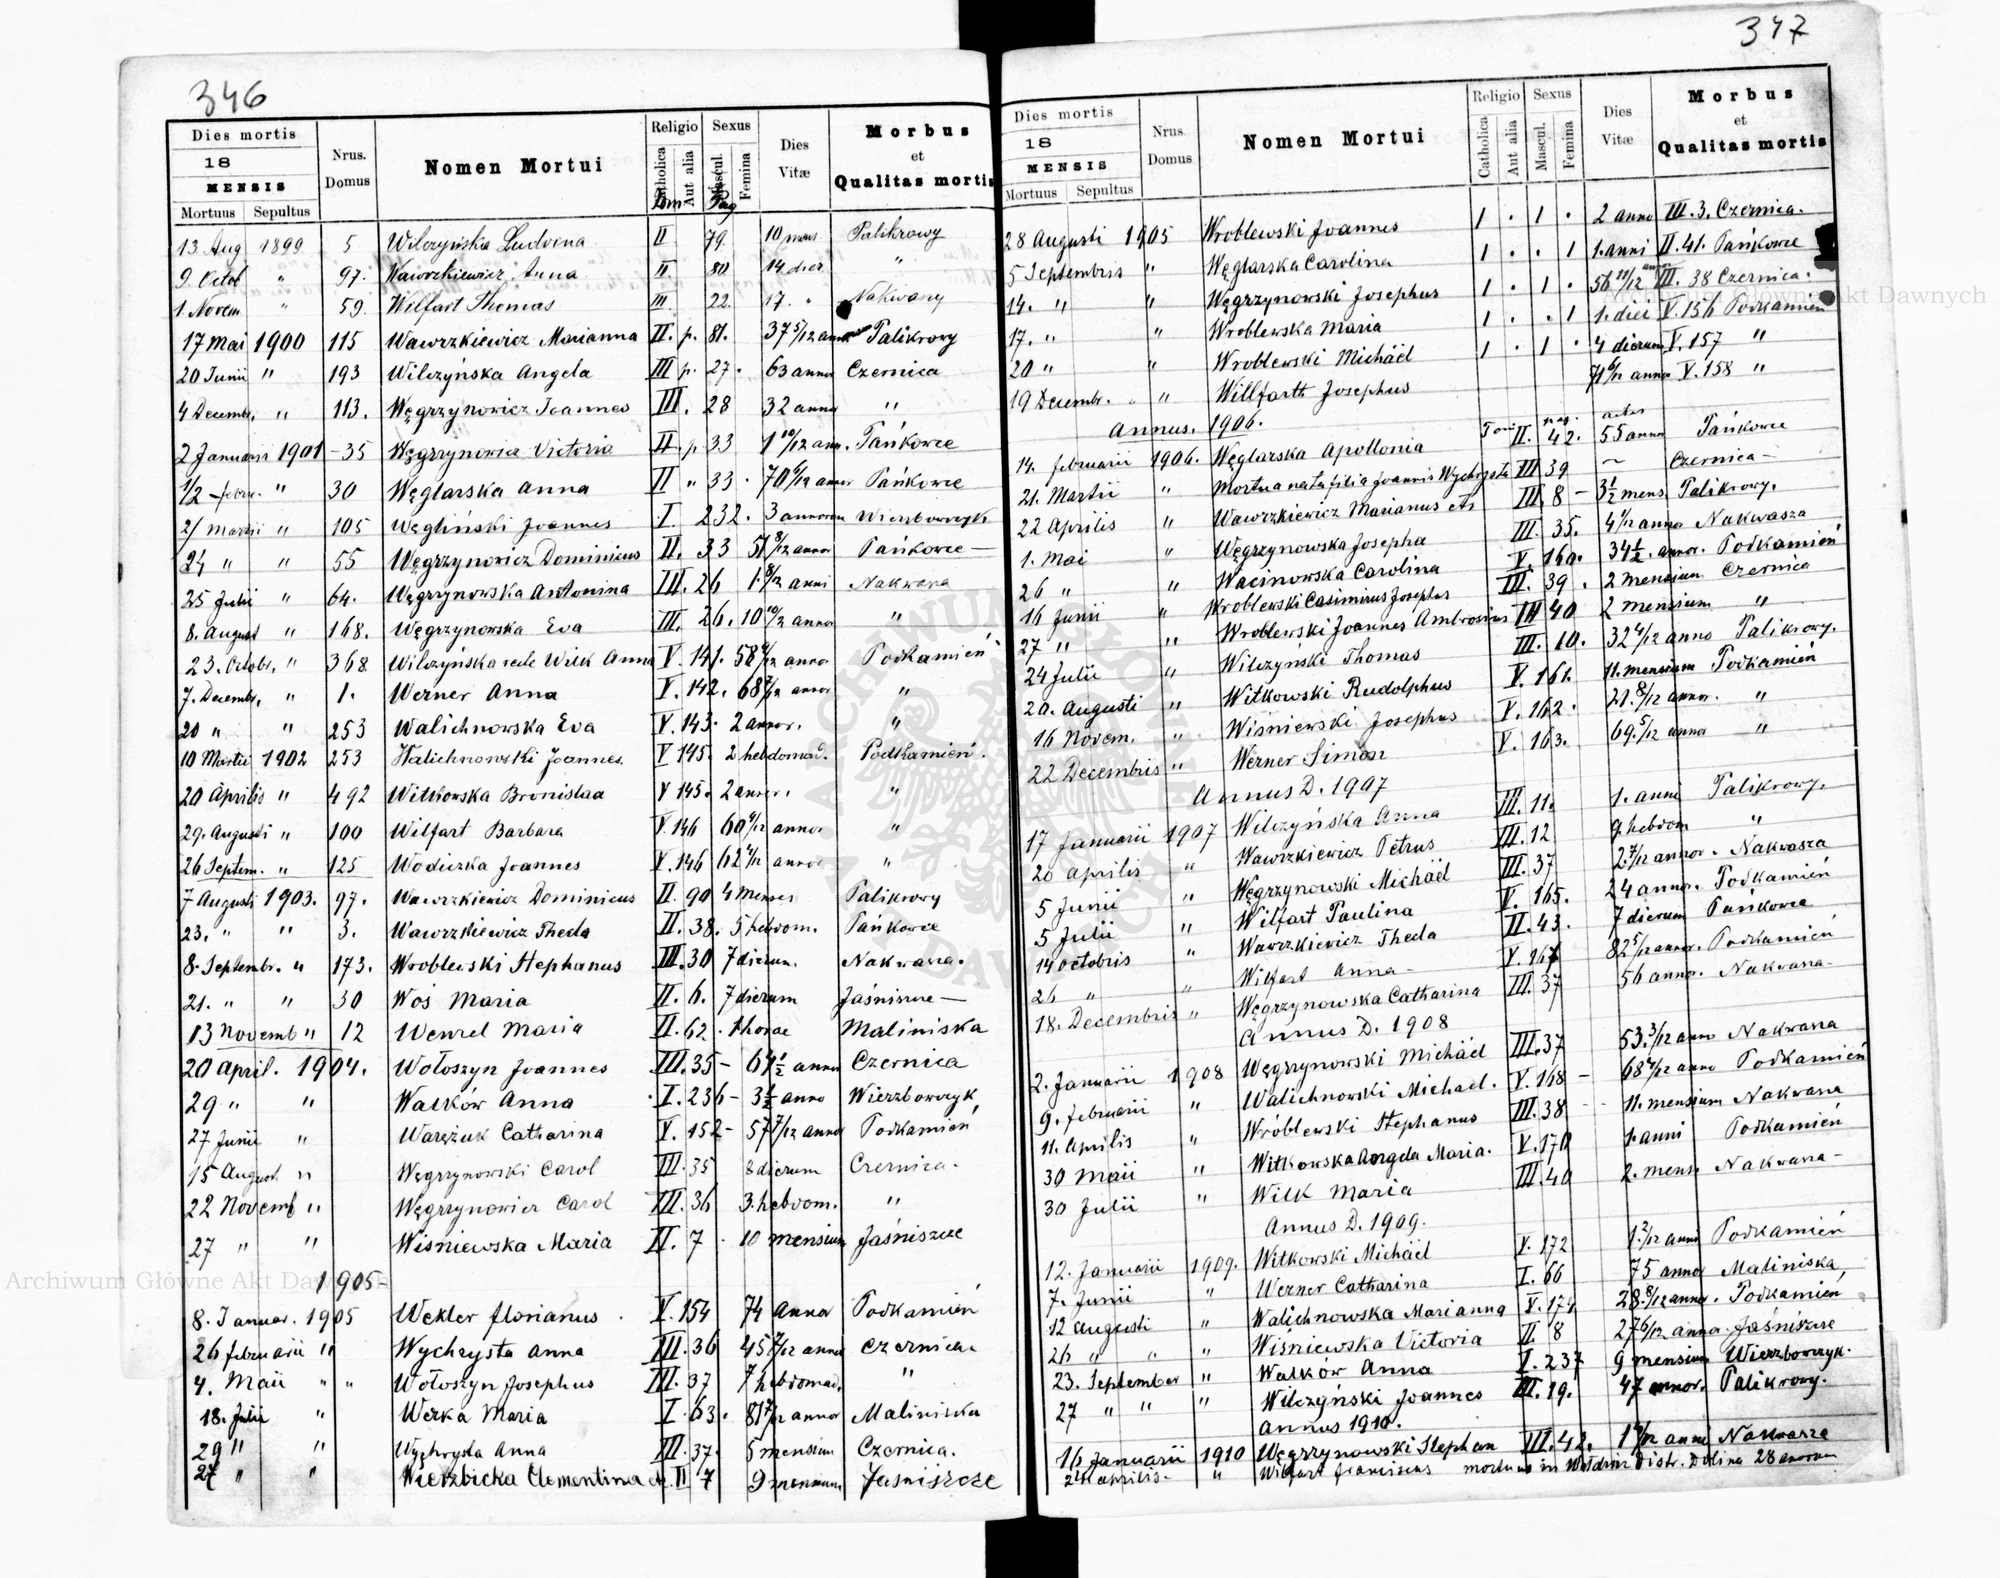 346
Dies mortis
18
MENSIS
Mortuus Sepultus
Nrus. Domus
Nomen Mortui
Religio
Catholica
Aut alia
Sexus
Mascul.
Femina
Tom
Pag
Dies Vitæ
Morbus
et
Qualitas mortis
13 Aug 1899 5 Wilczyńska Ludvina II 79 10 mens Palikrowy
9. Octob " 97. Wawrzkiewicz Anna II. 80 14. dier "
1. Novem " 59. Wilfart Thomas III 22. 17. " Nakwasy
17 Mai 1900 115 Wawrzkiewicz Marianna II. p. 81. 37 5/12 annor Palikrowy
20 Junii " 193 Wilczyńska Angela III p. 27. 63 annor Czernica
4 Decembr. " 113. Węgrzynowicz Joannes III. 28 32 anno "
2 Januarii 1901 - 35 Węgrzynowicz Victoria II. p. 33 1 10/12 ann. Pańkowce
1/2 febru. " 30 Węglarska Anna II " 33. 70 6/12 annor Pańkowce
2/ Martii " 105 Węgliński Joannes I. 232. 3 annorum Wierzbowczyk
24 " " 55 Węgrzynowicz Dominicus II. 33 51 8/12 annor Pańkowce —
25 Julii " 64. Węgrzynowska Antonina III. 26 1. 8/12 anni Nakwasa
8. August " 168. Węgrzynowska Eva III. 26. 10 10/12 annor "
23. Octobr. " 368 Wilczyńska recte Wilk Anna V. 141. 58 4/12 annor Podkamień
7. Decembr. " 1. Werner Anna V. 142. 68 7/12 annor "
20 " " 253 Walichnowska Eva V. 143. 2 annor. "
10 Martii 1902 253 Walichnowski Joannes. V 145. 2 hebdomad. Podkamień.
20 Aprilis " 492 Witkowska Bronislaa V 145. 2 annor. "
29. Augusti " 100 Wilfart Barbara V. 146 60 4/12 annor "
26 Septem. " 125 Wodiczka Joannes V. 146 62 4/12 annor "
7 Augusti 1903. 97. Wawrzkiewicz Dominicus II. 90 4 menses Palikrowy
23. " " 3. Wawrzkiewicz Theda II. 38. 5 hebdom. Pańkowce
8. Septembr. " 173. Wroblewski Stephanus III. 30 7 dierum. Nakwasa.
21. " " 30 Woś Maria II. 6. 7 dierum Jaśniszcze —
13 Novemb " 12 Wenzel Maria II. 62. 1 horae Maliniska
20 April. 1904. Wołoszyn Joannes III. 35 - 64 1/2 annor Czernica
29 " " Walków Anna I. 236 - 3 1/2 anno Wierzbowczyk
27 Junii " Warężuk Catharina V. 152 - 57 7/12 annor Podkamień
15 August. " Węgrzynowski Carol III. 35 8 dierum Czernica.
22 Novemb " Węgrzynowicz Carol III. 36 3. hebdom. "
27 " " Wiśniewska Maria II. 7. 10 mensium Jaśniszcze
1905
8. Januar. 1905 Wekler Florianus. V. 154 74 annor Podkamień
26 Februarii " Wychrysta Anna III. 36 45 7/12 annor Czernica.
4. Maii " " Wołoszyn Josephus III. 37 7 hebdomad. "
18. Julii " Werka Maria I. 63. 81 7/12 annor Maliniska
29 " " Wychrysta Anna III. 37. 5 mensium Czernica.
27 " " Wierzbicka Clementina II 7 9 mensium Jaśniszcze
347
Dies mortis
18
MENSIS
Mortuus Sepultus
Nrus. Domus
Nomen Mortui
Religio
Catholica
Aut alia
Sexus
Mascul.
Femina
Dies Vitæ
Morbus
et
Qualitas mortis
28 Augusti 1905 Wroblewski Joannes 1 . 1 . 2 anno III. 3. Czernica.
5 Septembris " Węglarska Carolina 1 . . 1 1. anni II. 41. Pańkowce
14. " " Węgrzynowski Josephus 1 . 1 . 56 11/12 annor III. 38 Czernica.
17. " " Wroblewska Maria 1 . . 1 1. diei V. 156 Podkamień
20 " " Wroblewski Michäel 1 . 1 . 4 dierum V. 157 "
19 Decembr. " " Willfarth Josephus 71 6/12 annor V. 158 "
Annus. 1906. Tom pag. aetas
14. Februarii 1906. Węglarska Apollonia II. 42. 55 annor Pańkowce
21. Martii " Mortua nata filia Joannis Wychrysta III 39 ~ Czernica —
22 Aprilis " Wawrzkiewicz Marianus III. 8 - 3 1/2 mens Palikrowy.
1. Mai " Węgrzynowska Josepha III. 35. 4 1/12 annor Nakwasza
26 " " Wacinowska Carolina V. 160. 34 1/2 annor. Podkamień
16 Junii " Wroblewski Casimirus Josephus III. 39. 2 mensium Czernica
27 " " Wroblewski Joannes Ambrosius III 40 2 mensium "
24 Julii " Wilczyński Thomas III. 10. 32 4/12 anno Palikrowy.
20. Augusti " Witkowski Rudolphus V. 161. 11. mensium Podkamień
16 Novem. " Wiśniewski Josephus V. 162. 21. 8/12 annor. "
22 Decembris " Werner Simon V. 163. 69. 5/12 annor "
Annus D. 1907
17 Januarii 1907 Wilczyńska Anna III. 11. 1. anni Palikrowy.
20 Aprilis " Wawrzkiewicz Petrus III. 12 9. hebdom "
5 Junii " Węgrzynowski Michäel III. 37 2. 7/12 annor. Nakwasza
5 Julii " Wilfart Paulina V. 165. 24 annor. Podkamień
14 Octobris " Wawrzkiewicz Theda II. 43. 7 dierum Pańkowce
26 " " Wilfart Anna - V. 167 82 5/12 annor. Podkamień
18. Decembris " Węgrzynowska Catharina III. 37 56 annor. Nakwasa -
Annus D. 1908
2. Januarii 1908 Węgrzynowski Michäel III. 37 53. 3/12 anno Nakwasa
9. Februarii " Walichnowski Michael. V. 168 - 68 4/12 anno Podkamień
11. Aprilis " Wróblewski Stephanus III. 38 - - 11. mensium Nakwasa
30 Maii " Witkowska Angela Maria. V. 170 1. anni Podkamień
30 Julii " Wilk Maria III. 40 2. mens. Nakwasa —
Annus D. 1909.
12. Januarii 1909. Witkowski Michäel V. 172 1. 2/12 anni Podkamień
7. Junii " Werner Catharina I. 66 75 annor Maliniska
12 Augusti " Walichnowska Marianna V. 174 28. 8/12 annor. Podkamień
26 " " " Wiśniewska Victoria II 8 27 6/12 anno. Jaśniszcze
23. September " Walków Anna I. 237 9 mensium Wierzbowczyk.
27 " " " Wilczyński Joannes III. 19. 47 annor. Palikrowy.
Annus 1910.
16 Januarii 1910 Węgrzynowski Stephan III. 42. anni Nakwasza
Aprilis. " Wilfart Franciscus mortuus in Distr. Dolina 28 annorum
Archiwum Główne Akt Dawnych
Archiwum Główne Akt Dawnych
ARCHIWUM GŁÓWNE AKT DAWNYCH